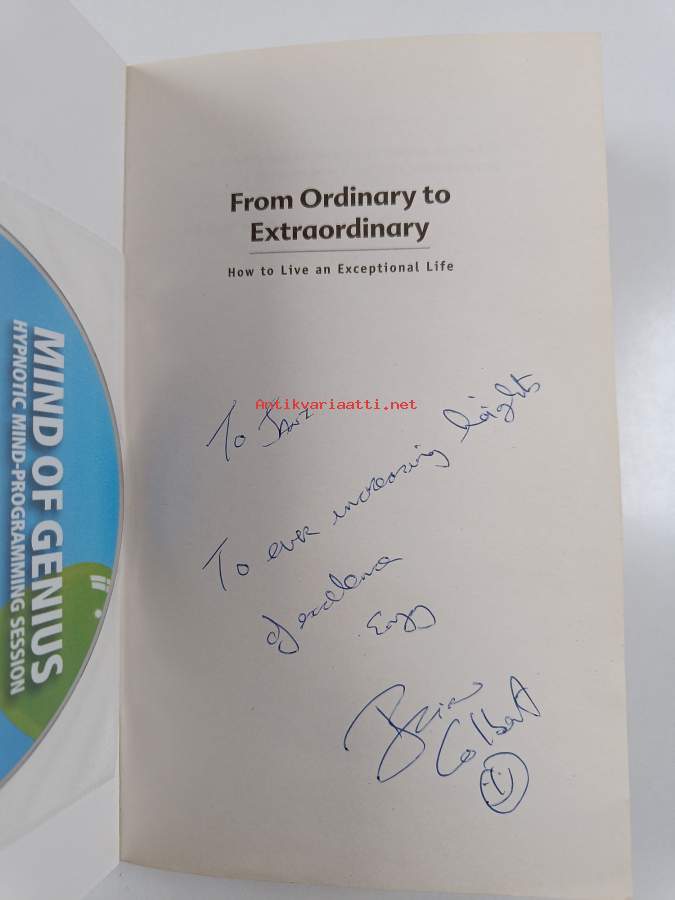 From Ordinary to
Extraordinary
How to Live an Exceptional Life
Antikvariaatti.net
To
To ever increasing heights
of excellence
Enjoy
Brian
Colbert
MIND OF GENIUS
HYPNOTIC MIND-PROGRAMMING SESSION